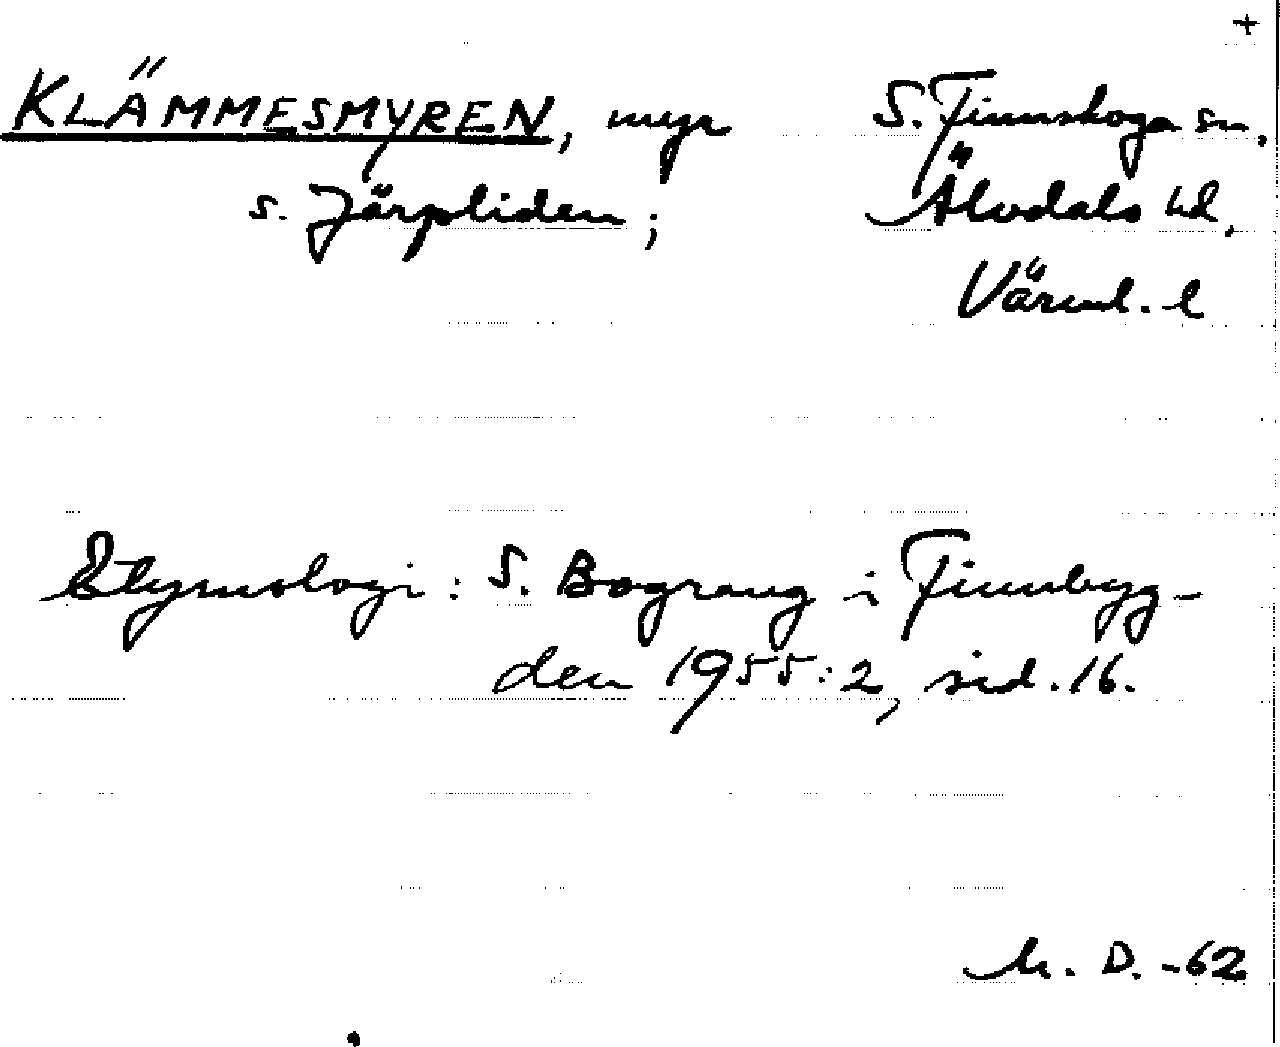 +
KLÄMMESMYREN, myr S. Finnskoga sn,
s. Järpliden; Älvdals hd,
Värml. l
Etymologi: S. Bograng i Finnbyg-
den 1955:2, sid. 16.
M. D. -62